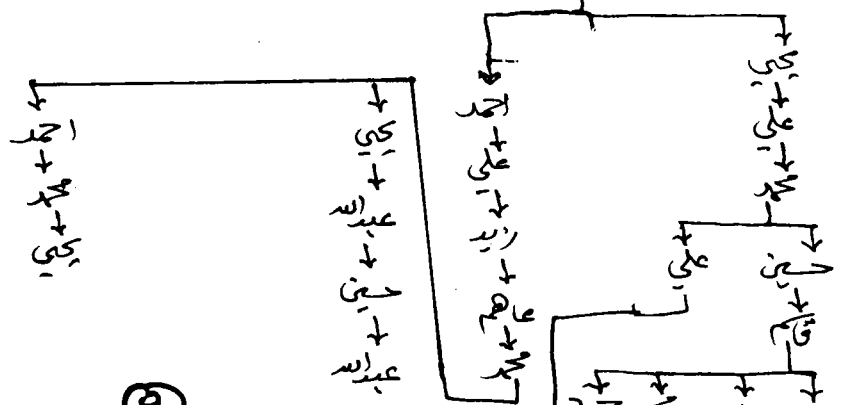 يحيى
علي
محمد
حسين
قاسم
علي
أحمد
علي
زيد
محمد
يحيى
عبدالله
حسين
عبدالله
أحمد
محمد
يحيى